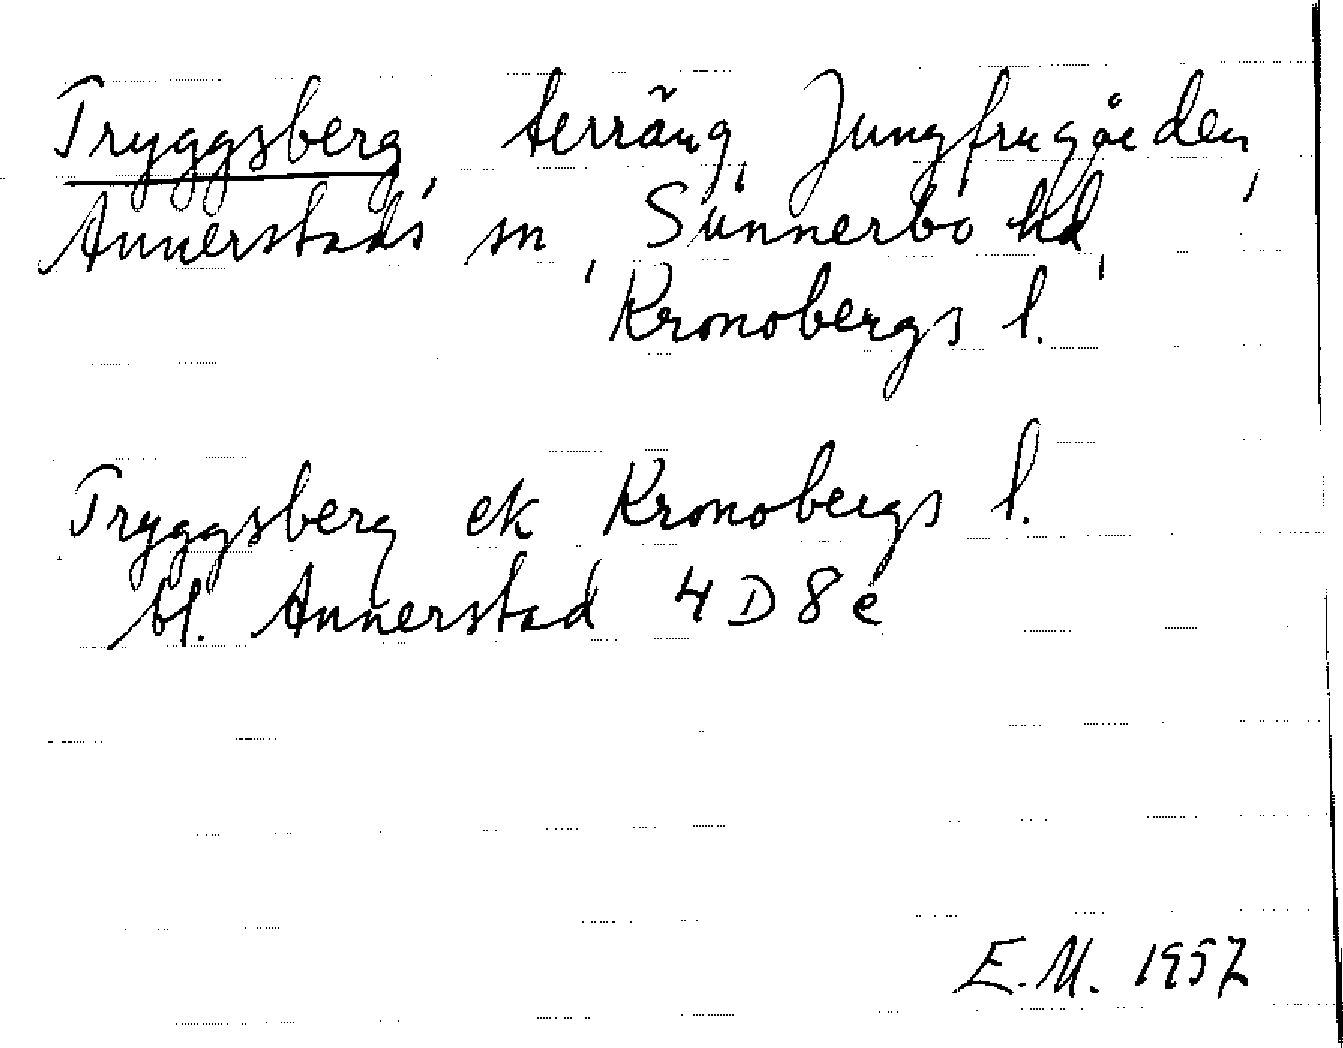 Tryggsberg, terräng, Jungfrugården,
Annerstads sn, Sunnerbo hd,
Kronobergs l.
Tryggsberg ek Kronobergs l.
bl. Annerstad 4D8e
E.M. 1957